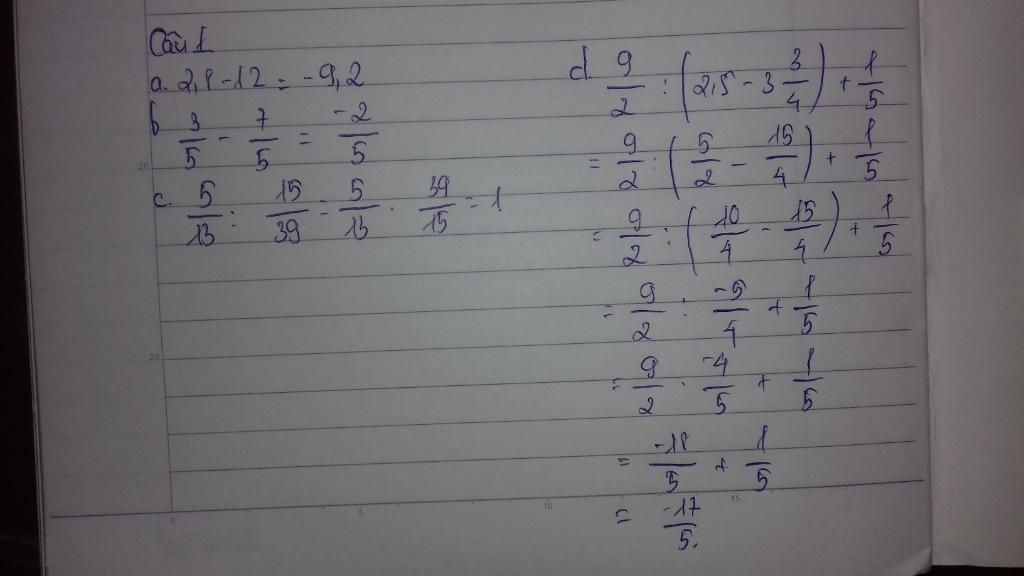 Câu 1
a. 2,8 - 12 = -9,2
b 3/5 - 7/5 = -2/5
c. 5/13 : 15/39 = 5/13 . 39/15 = 1
d. 9/2 : (2,5 - 3 3/4) + 1/5
= 9/2 : (5/2 - 15/4) + 1/5
= 9/2 : (10/4 - 15/4) + 1/5
= 9/2 : -5/4 + 1/5
= 9/2 . -4/5 + 1/5
= -18/5 + 1/5
= -17/5.
20
25
0 5 10 15